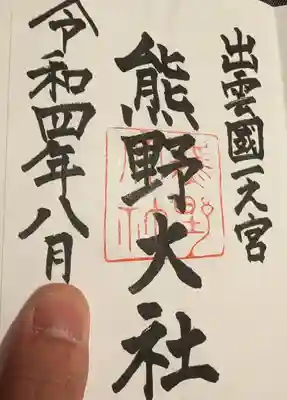 出雲國一之宮
熊野大社
令和四年八月